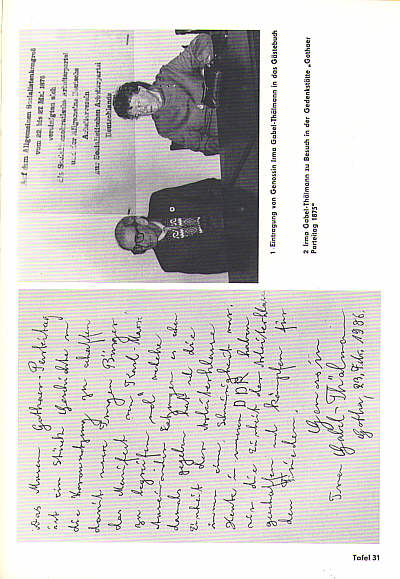 Auf dem Allgemeinen Sozialistenkongreß
vom 22. bis 27. Mai 1875
vereinigten sich
die Sozialdemokratische Arbeiterpartei
und der Allgemeine Deutsche
Arbeiterverein
zur Sozialistischen Arbeiterpartei
Deutschlands
1 Eintragung von Genossin Irma Gabel-Thälmann in das Gästebuch
2 Irma Gabel-Thälmann zu Besuch in der Gedenkstätte „Gothaer
Parteitag 1875"
Das Museum Gothaer-Parteitag
ist ein Stück Geschichte um
die Voraussetzung zu schaffen
damit unsere jungen Bürger
das Manifest von Karl Marx
zu begreifen und welche
Auseinander es
damals gegeben hat die
Einheit der Arbeiterklasse
immer eine Schwierigkeit war.
Heute in unserer DDR haben
wir die Einheit der Arbeiterklasse
geschaffen und kämpfen für
den Frieden.
Genossin
Irma Gabel-Thälmann
Gotha, 23. Feb. 1986.
Tafel 31